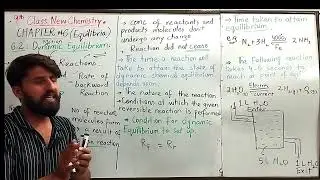 9th Class New Chemistry
CHAPTER #6 (Equilibria)
6.2 Dynamic Equilibrium
Reactions
Rate of
backward
Reaction
No of reac
molecules form
result of
reaction
conc of reactants and
products molecules dont
undergo any change
Reaction did not cease
The time a reaction will
take to attain the state of
dynamic chemical equilibrium
depends upon
The nature of the reaction
Conditions at which the given
reversible reaction is performed
Condition for dynamic
Equilibrium to Set up.
Rf = Rr
Time taken to attain
equilibrium
e.g N2 + 3H2
Fe
The Following reaction
takes
reach at point of eq
2H2O Electric current 2H2(g) + O2(g)
1L H2O
Enter
5L H2O
1L H2O
Exit